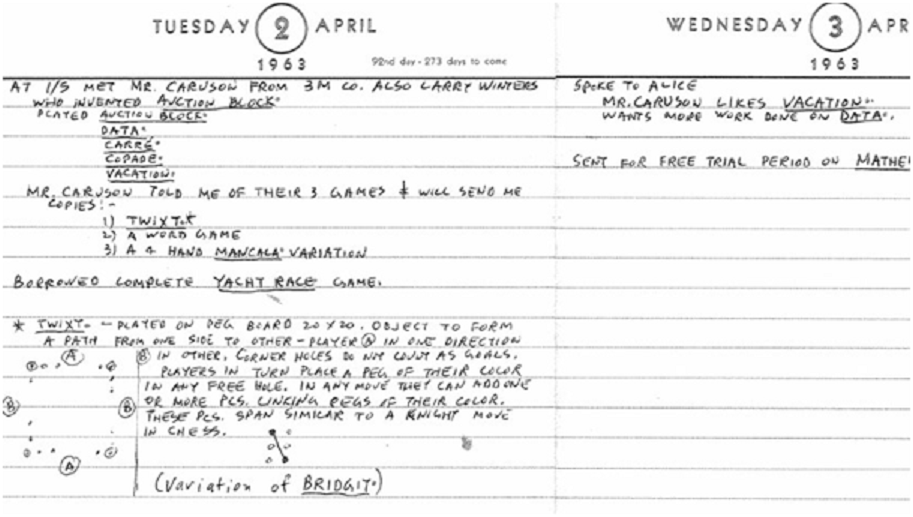 TUESDAY 2 APRIL
1963
92nd day - 273 days to come
AT I/S MET MR. CARUSON FROM 3M CO. ALSO LARRY WINTERS
WHO INVENTED AUCTION BLOCK.
PLAYED AUCTION BLOCK.
DATA.
CARRÉ.
COPADE.
VACATION.
MR. CARUSON TOLD ME OF THEIR 3 GAMES & WILL SEND ME
COPIES:-
1) TWIXT.*
2) A WORD GAME
3) A 4 HAND MANCALA VARIATION
BORROWED COMPLETE YACHT RACE GAME.
* TWIXT. - PLAYED ON PEG BOARD 20 X 20. OBJECT TO FORM
A PATH FROM ONE SIDE TO OTHER - PLAYER A IN ONE DIRECTION
B IN OTHER. CORNER HOLES DO NOT COUNT AS GOALS.
PLAYERS IN TURN PLACE A PEG OF THEIR COLOR
IN ANY FREE HOLE. IN ANY MOVE THEY CAN ADD ONE
OR MORE PCS. LINKING PEGS OF THEIR COLOR.
THESE PCS. SPAN SIMILAR TO A KNIGHT MOVE
IN CHESS.
A
B
B
A
(Variation of BRIDGIT.)
WEDNESDAY 3 APR
1963
SPOKE TO ALICE
MR. CARUSON LIKES VACATION.
WANTS MORE WORK DONE ON DATA.
SENT FOR FREE TRIAL PERIOD ON MATHE